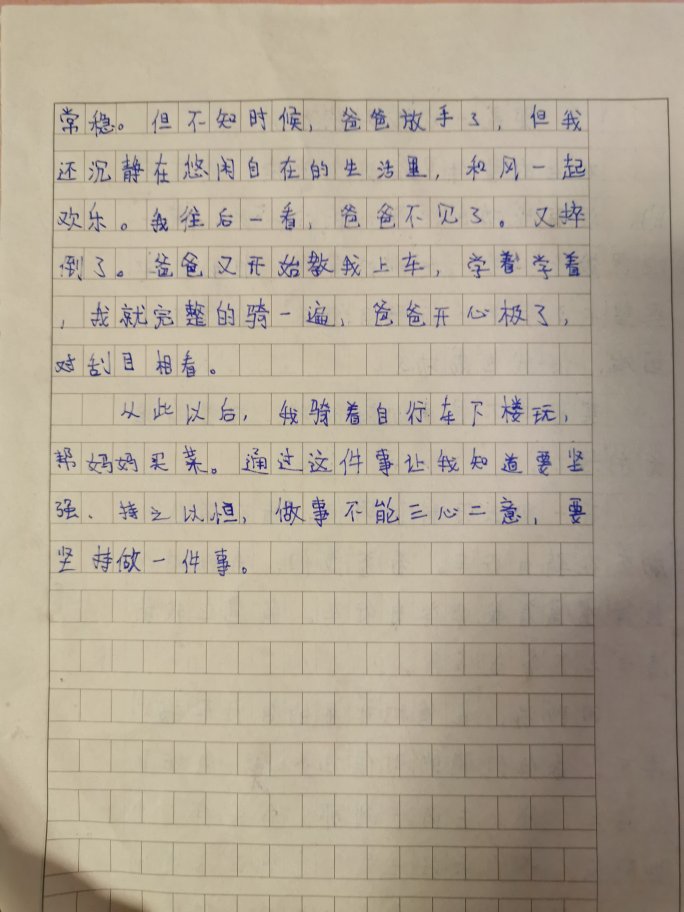 常稳。但不知时候，爸爸放手了，但我
还沉静在悠闲自在的生活里，和风一起
欢乐。我往后一看，爸爸不见了。又摔
倒了。爸爸又开始教我上车，学着学着
，我就完整的骑一遍，爸爸开心极了，
对刮目相看。
从此以后，我骑着自行车下楼玩，
帮妈妈买菜。通过这件事让我知道要坚
强、持之以恒，做事不能三心二意，要
坚持做一件事。